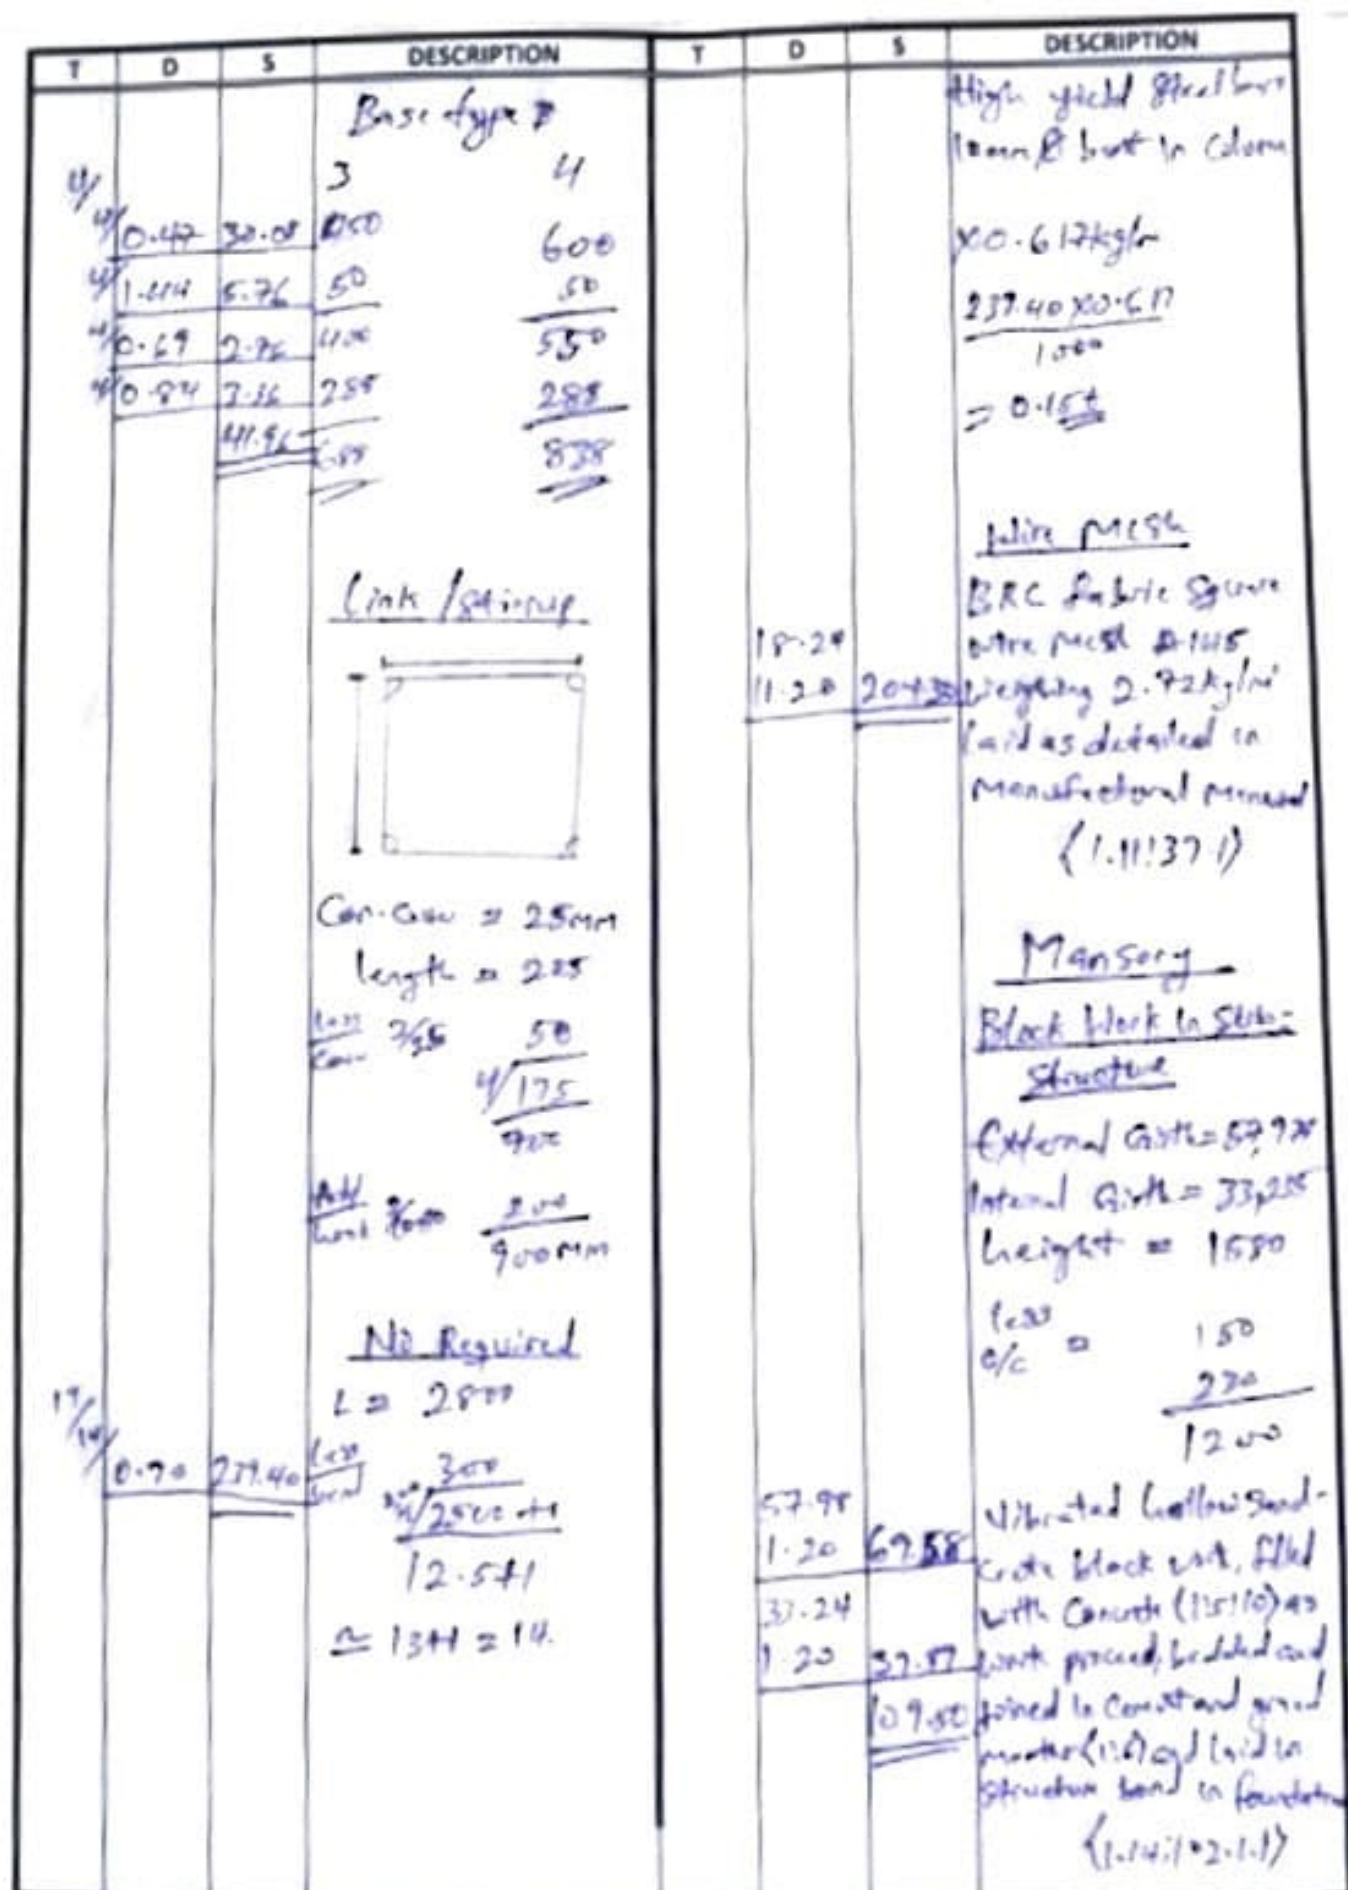 T D S DESCRIPTION
Base type
3 4
4/
4/ 0.47 30.08 050 600
4/ 1.44 5.76 50 50
4/ 0.69 2.76 400 550
4/ 0.84 3.36 288 288
41.96 688 838
Link /stirrup
Con. Cover = 25mm
length = 225
less
Cover 2/25 50
4/ 175
700
Add
2/100 200
900mm
No Required
L = 2800
19/
14/ 0.90 239.40 less 300
2500 +1
12.5+1
≈ 13+1 = 14.
T D S DESCRIPTION
High yield Steel bars
10mm Ø bent in Column
x0.617kg/m
239.40 x0.617
1000
= 0.15t
Wire Mesh
BRC Fabric Square
18.24 wire mesh A145
11.20 204.30 weighing 2.92kg/m²
laid as detailed in
Manufactural manual
(1.11:37.1)
Mansory
Block Work in Sub-
Structure
External Girth = 57,978
Internal Girth = 33,235
height = 1580
less 150
o/c = 230
1200
57.98 Vibrated hollow Sand-
1.20 69.58 crete block work, filled
33.24 with Concrete (1:5:10) as
1.20 39.89 work proceed, bedded and
109.50 joined in Cement and
(1:6) and laid in
bond in foundation
(1.14:1*2.1.1)